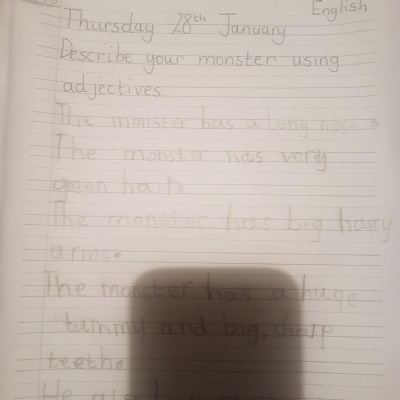 English
Thursday 28th January
Describe your monster using
adjectives
The monster has a long nose.
The monster has very
green hair.
The monster has big hairy
arms.
The monster has a huge
tummy and big, sharp
teeth.
He